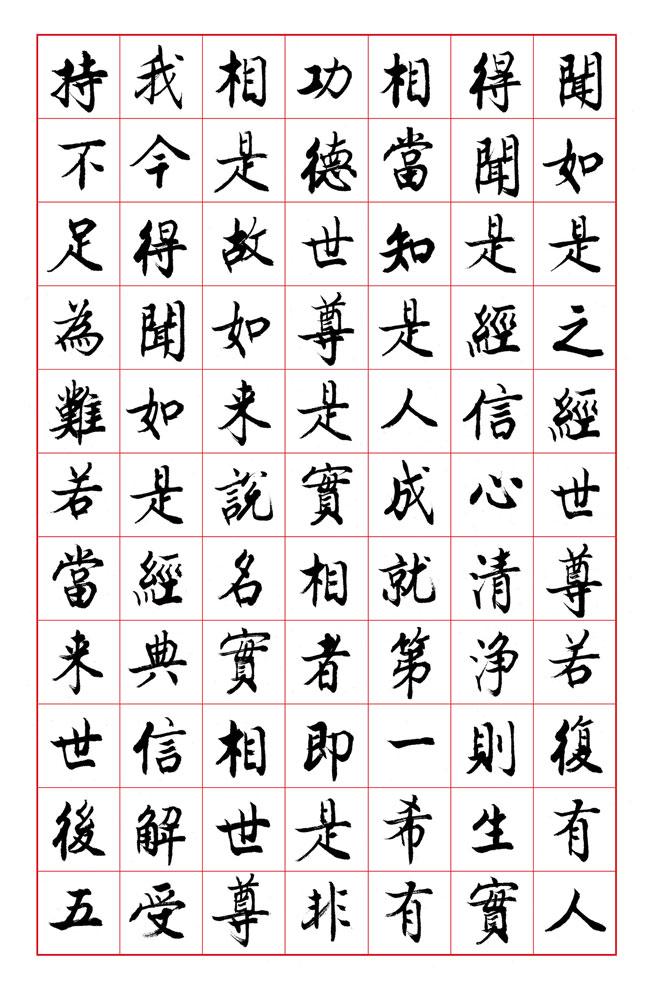 聞如是之經世尊若復有人
得聞是經信心清淨則生實
相當知是人成就第一希有
功德世尊是實相者即是非
相是故如来說名實相世尊
我今得聞如是經典信解受
持不足為難若當来世後五